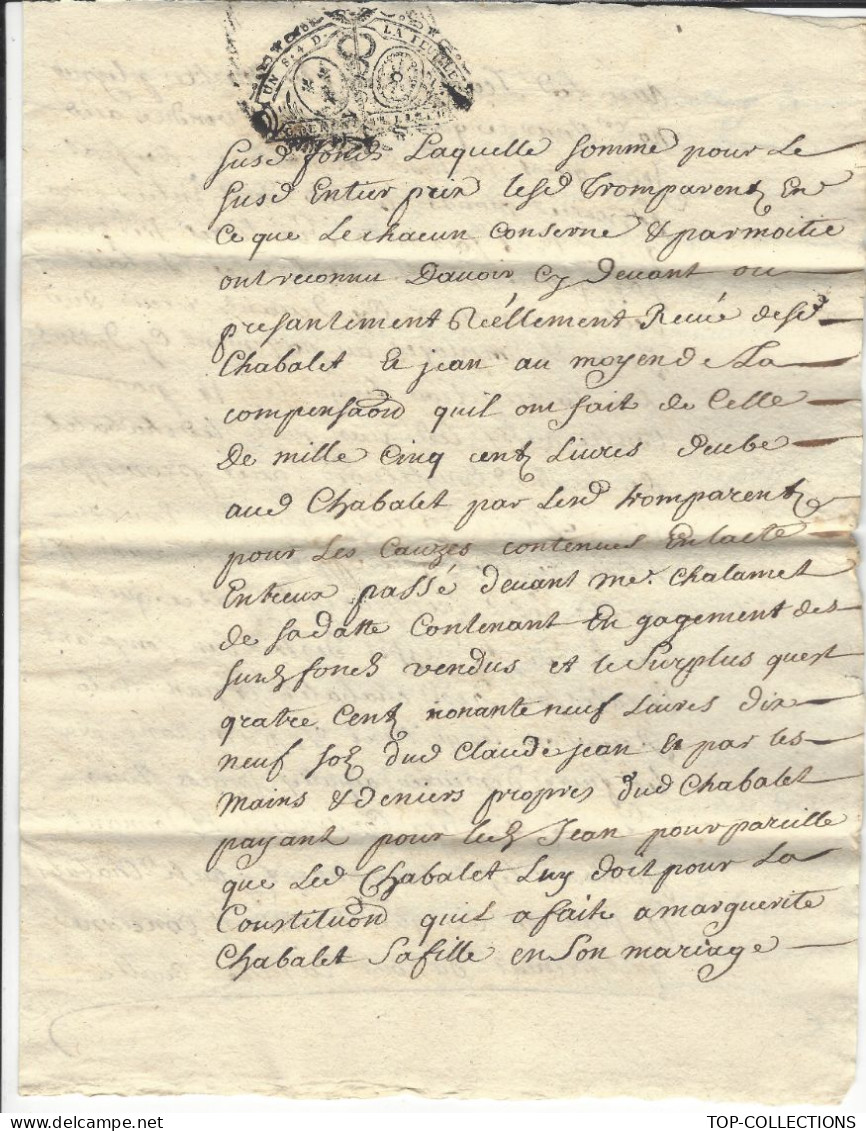 UN S. 4 D. LA FEUILLE
susd fonds Laquelle somme pour Le
susd Entier prix lesd Tromparentz En
ce que Le chacun conserne & par moitié
ont reconnu Davoir Cy Devant ou
presantement Réellement Receue desd
Chabalet & jean au moyen de La
compensaon quil ont fait de Celle
De mille Cinq centz Livres deube
aud Chabalet par Lesd tromparentz
pour Les Cauzes contenues En lacte
Entreux passé devant me. Chalamet
de sa datte Contenant En gagement des
susd fondz vendus et le Surplus quest
quatre Centz nonante neuf Livres dix
neuf solz dud Claude jean & par les
mains & deniers propres dud Chabalet
payant pour led Jean pour pareille
que Led Chabalet Luy doit pour La
Constituon quil a faite a marguerite
Chabalet sa fille en son mariage
TOP-COLLECTIONS